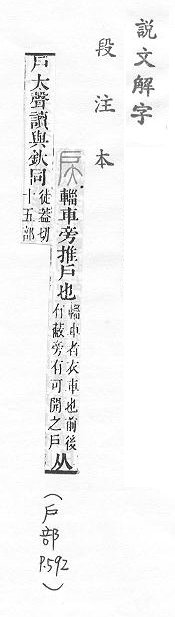 説文解字
段注本
戻 輜車旁推戶也
輜車者衣車也前後
有蔽旁有可開之戶
从
戶大聲讀與釱同
徒蓋切
十五部
(戶部 P.592)